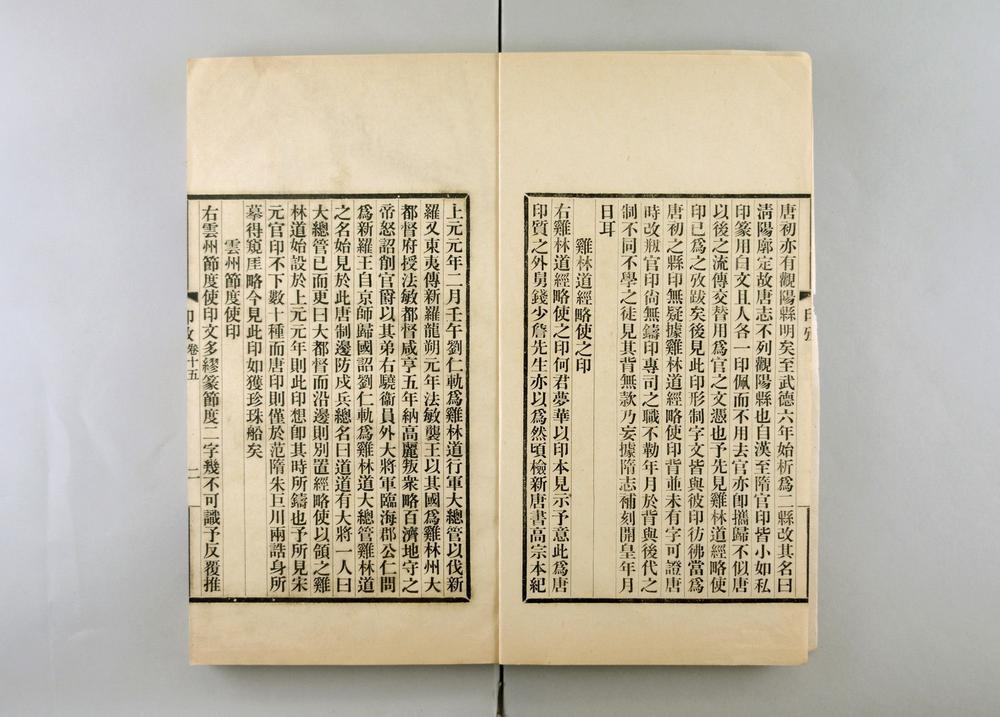 唐初亦有觀陽縣明矣至武德六年始析爲二縣改其名曰
淸陽廓定故唐志不列觀陽縣也自漢至隋官印皆小如私
印篆用白文且人各一印佩而不用去官亦卽攜歸不似唐
以後之流傳交替用爲官之文憑也予先見雞林道經略使
印已爲之攷跋矣後見此印形制字文皆與彼印彷彿當爲
唐初之縣印無疑據雞林道經略使印背並未有字可證唐
時改瓶官印尙無鑄印專司之職不勒年月於背與後代之
制不同不學之徒見其背無款乃妄據隋志補刻開皇年月
日耳
雞林道經略使之印
右雞林道經略使之印何君夢華以印本見示予意此爲唐
印質之外舅錢少詹先生亦以爲然頃檢新唐書高宗本紀
上元元年二月壬午劉仁軌爲雞林道行軍大總管以伐新
羅又東夷傳新羅龍朔元年法敏襲王以其國爲雞林州大
都督府授法敏都督咸亨五年納高麗叛衆略百濟地守之
帝怒詔削官爵以其弟右驍衞員外大將軍臨海郡公仁問
爲新羅王自京師歸國詔劉仁軌爲雞林道大總管雞林道
之名始見於此唐制邊防戍兵總名曰道道有大將一人曰
大總管已而更曰大都督而沿邊則別置經略使以領之雞
林道始設於上元元年則此印想卽其時所鑄也予所見宋
元官印不下數十種而唐印則僅於范隋朱巨川兩誥身所
摹得窺厓略今見此印如獲珍珠船矣
雲州節度使印
右雲州節度使印文多繆篆節度二字幾不可識予反覆推
印攷 卷十五
二